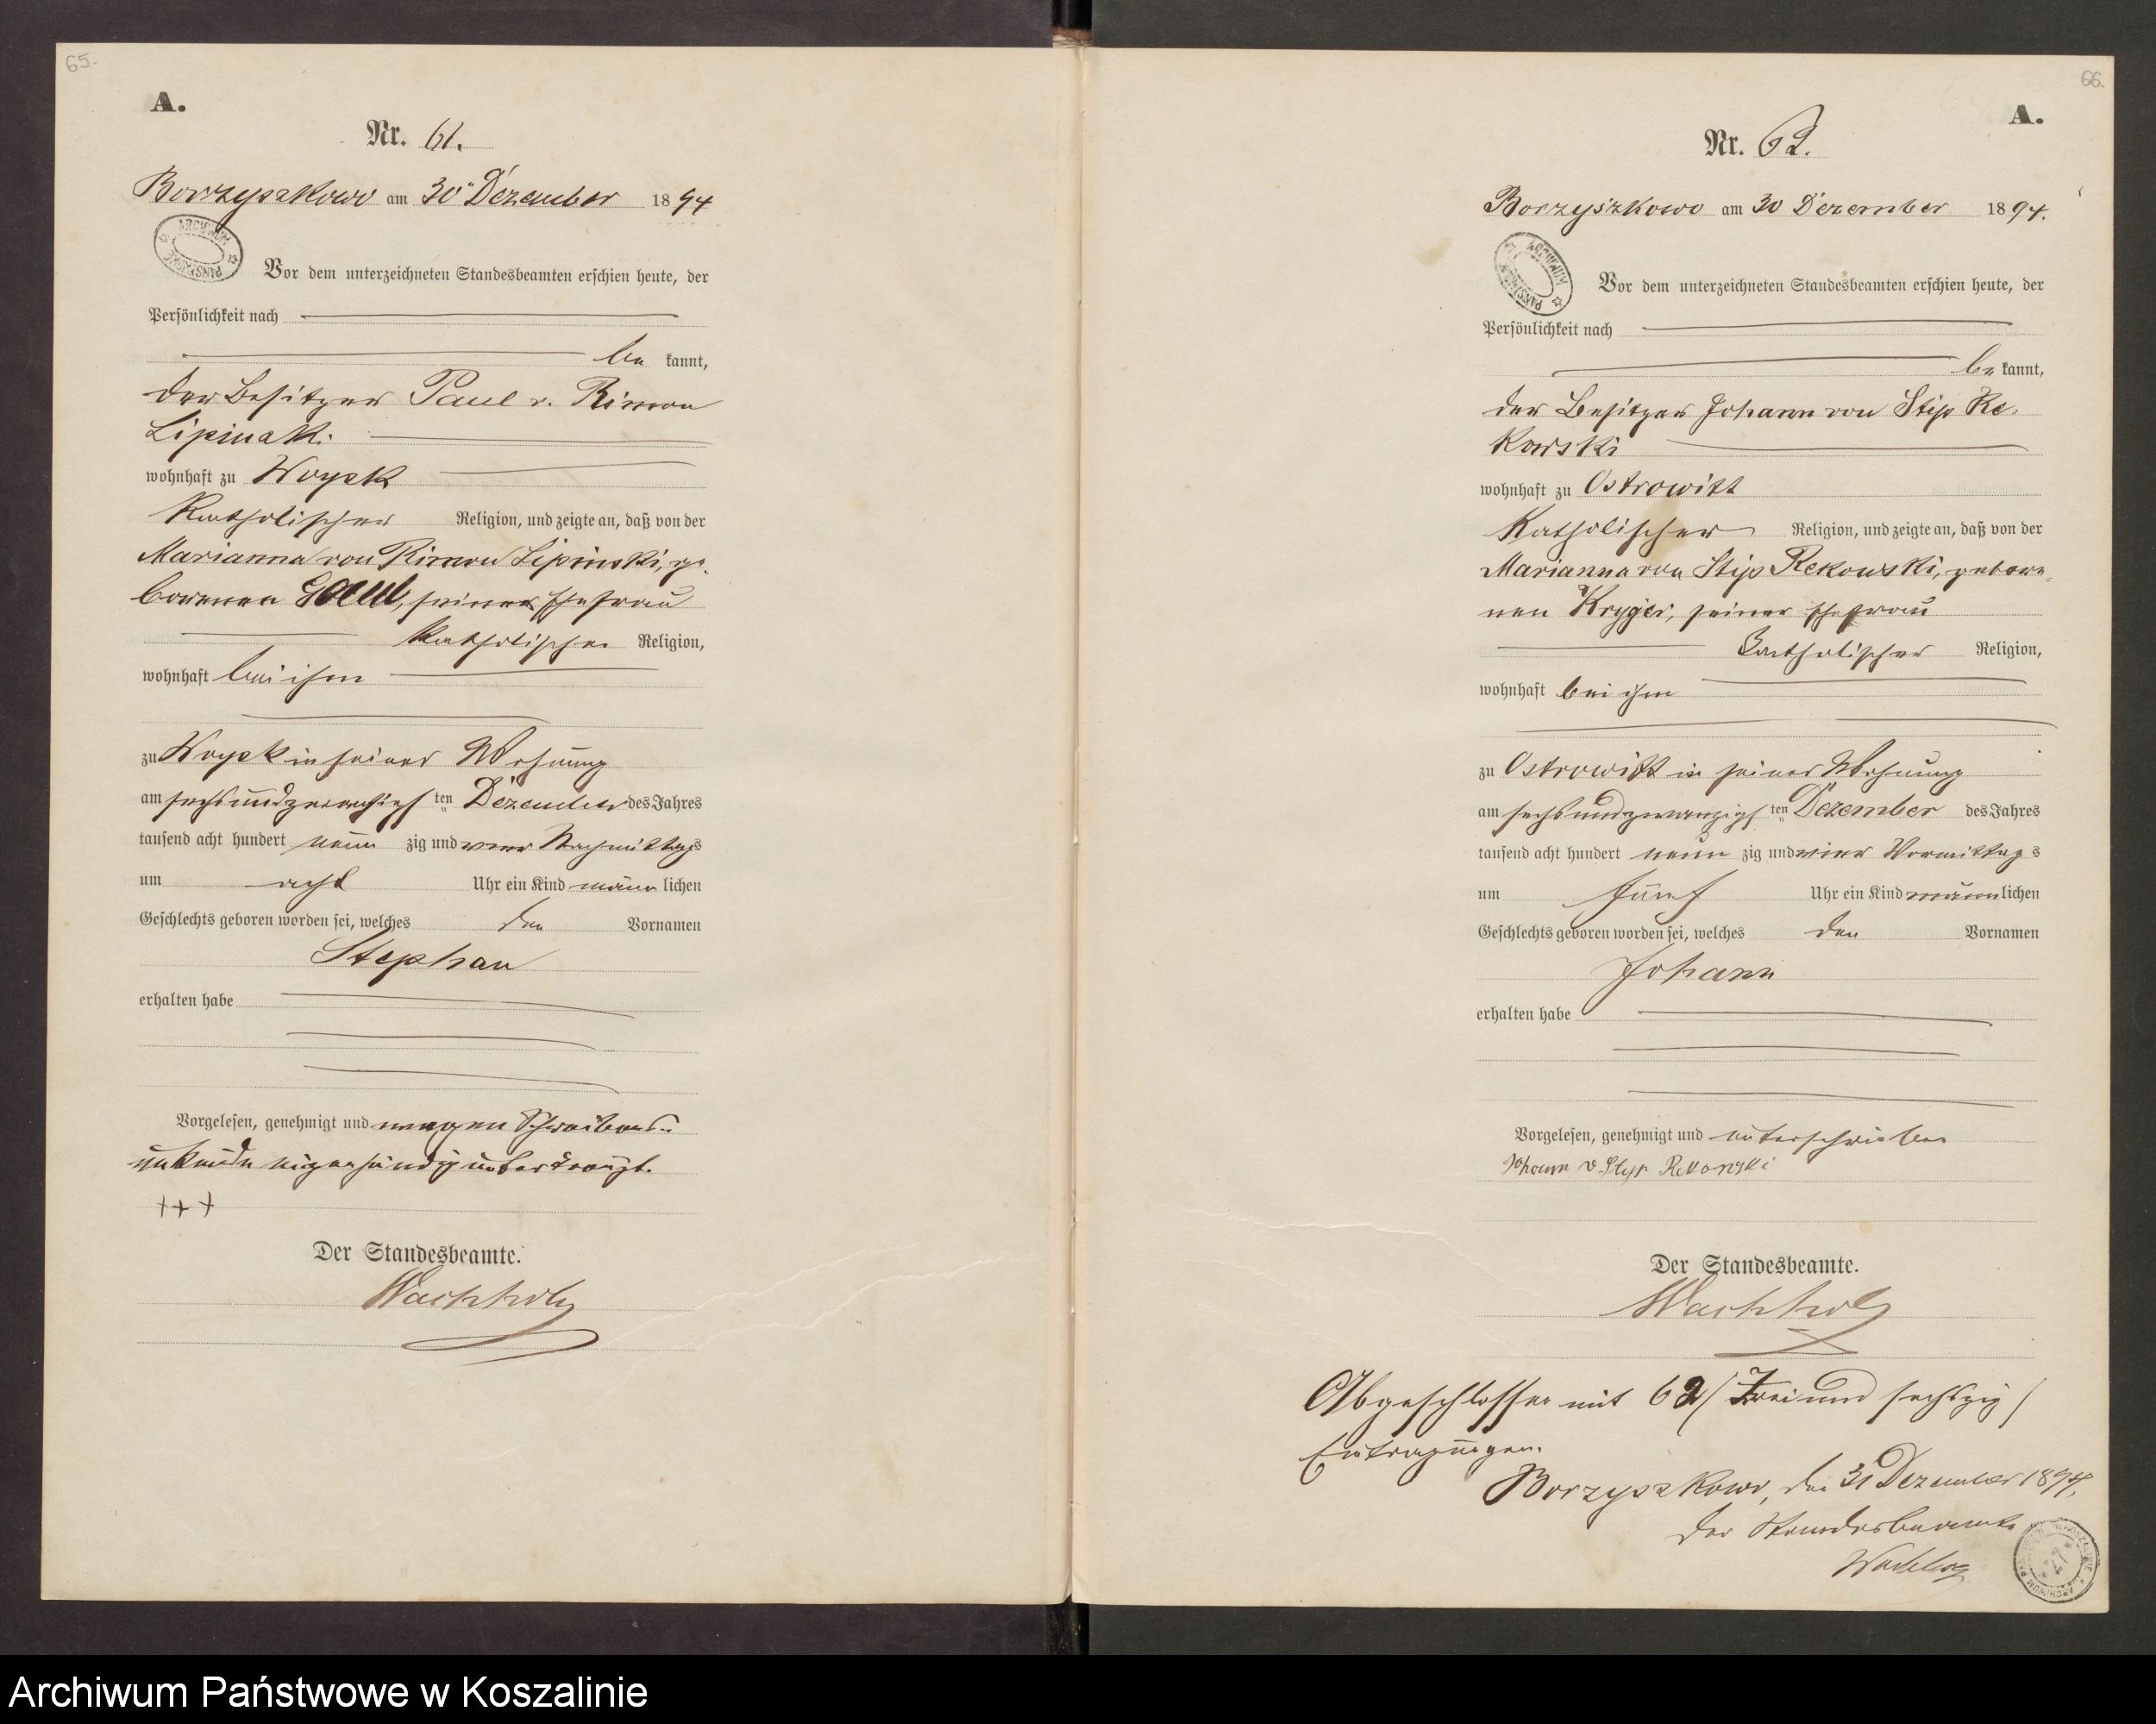 65.
A.
Nr. 61.
Borzyszkowo am 30 Dezember 1894
Vor dem unterzeichneten Standesbeamten erschien heute, der
Persönlichkeit nach
be kannt,
der Besitzer Paul v. Rimon
Lipinski
wohnhaft zu Woysk
Katholischer Religion, und zeigte an, daß von der
Marianna von Rimon Lipinski, ge-
borenen, seiner Ehefrau
Katholischer Religion,
wohnhaft bei ihm
zu Woysk in seiner Wohnung
am sechsundzwanzigsten Dezember des Jahres
tausend acht hundert neun zig und vier Nachmittags
um acht Uhr ein Kind männ lichen
Geschlechts geboren worden sei, welches den Vornamen
Stephan
erhalten habe
Vorgelesen, genehmigt und wegen Schreibens-
unkunde eigenhändig unterkreuzt.
+++
Der Standesbeamte.
Wachholz
66.
A.
Nr. 62.
Borzyszkowo am 30 Dezember 1894.
Vor dem unterzeichneten Standesbeamten erschien heute, der
Persönlichkeit nach
be kannt,
der Besitzer Johann von Stip Re-
kowski
wohnhaft zu Ostrowitt
Katholischer Religion, und zeigte an, daß von der
Marianna von Stip Rekowski, gebore-
nen Kryger, seiner Ehefrau
Katholischer Religion,
wohnhaft bei ihm
zu Ostrowitt in seiner Wohnung
am sechsundzwanzigsten Dezember des Jahres
tausend acht hundert neun zig und vier Vormittags
um fünf Uhr ein Kind männlichen
Geschlechts geboren worden sei, welches den Vornamen
Johann
erhalten habe
Vorgelesen, genehmigt und unterschrieben
Johann v Styp Rekowski
Der Standesbeamte.
Wachholz
Abgeschlossen mit 62 / Zwei und sechszig /
Eintragungen.
Borzyszkowo, den 31 Dezember 1894.
Der Standesbeamte
Wachholz
Archiwum Państwowe w Koszalinie